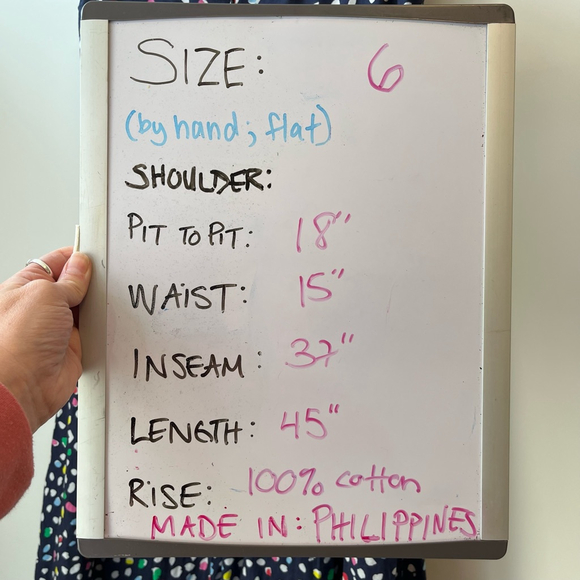 SIZE: 6
(by hand; flat)
SHOULDER:
PIT TO PIT: 18"
WAIST: 15"
INSEAM: 37"
LENGTH: 45"
RISE: 100% cotton
MADE IN: PHILIPPINES